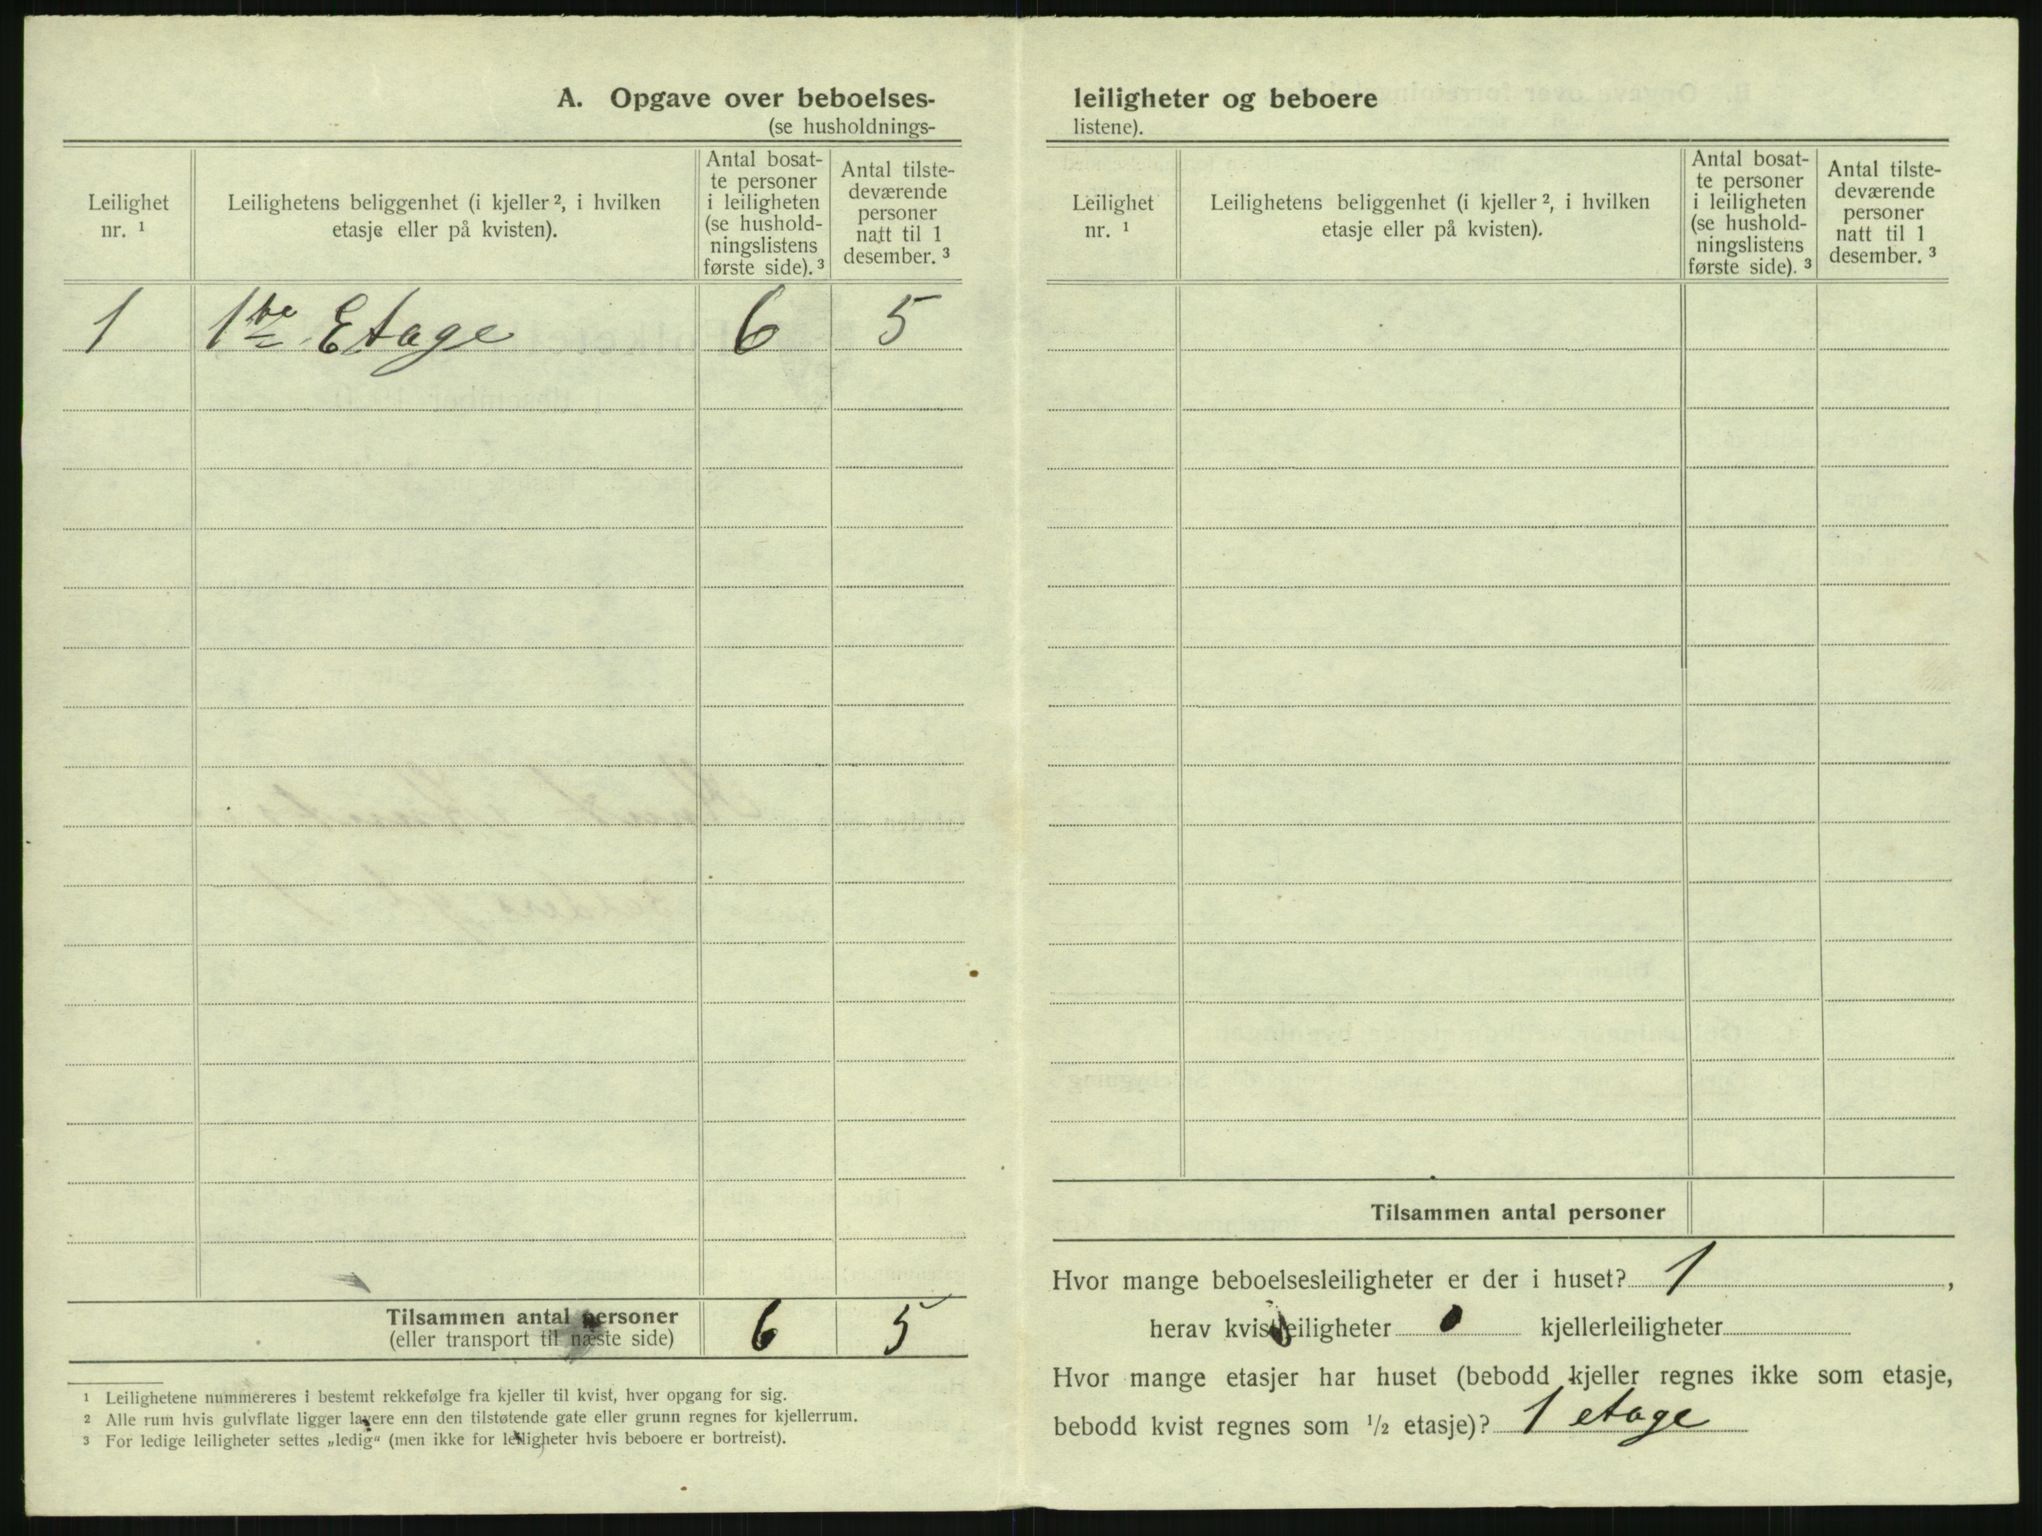 A. Opgave over beboelses-
(se husholdnings-
Leilighet
nr. ¹
Leilighetens beliggenhet (i kjeller ², i hvilken
etasje eller på kvisten).
Antal bosat-
te personer
i leiligheten
(se hushold-
ningslistens
første side). ³
Antal tilste-
deværende
personer
natt til 1
desember. ³
1 1ste Etage 6 5
Tilsammen antal personer 6 5
(eller transport til næste side)
¹ Leilighetene nummereres i bestemt rekkefølge fra kjeller til kvist, hver opgang for sig.
² Alle rum hvis gulvflate ligger lavere enn den tilstøtende gate eller grunn regnes for kjellerrum.
³ For ledige leiligheter settes „ledig" (men ikke for leiligheter hvis beboere er bortreist).
leiligheter og beboere
listene).
Leilighet
nr. ¹
Leilighetens beliggenhet (i kjeller ², i hvilken
etasje eller på kvisten).
Antal bosat-
te personer
i leiligheten
(se hushold-
ningslistens
første side). ³
Antal tilste-
deværende
personer
natt til 1
desember. ³
Tilsammen antal personer
Hvor mange beboelsesleiligheter er der i huset? 1 ,
herav kvistleiligheter 0 kjellerleiligheter
Hvor mange etasjer har huset (bebodd kjeller regnes ikke som etasje,
bebodd kvist regnes som ½ etasje)? 1 etage